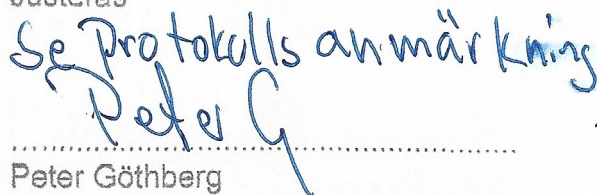 Justeras
Se Protokolls anmärkning
Peter G
Peter Göthberg